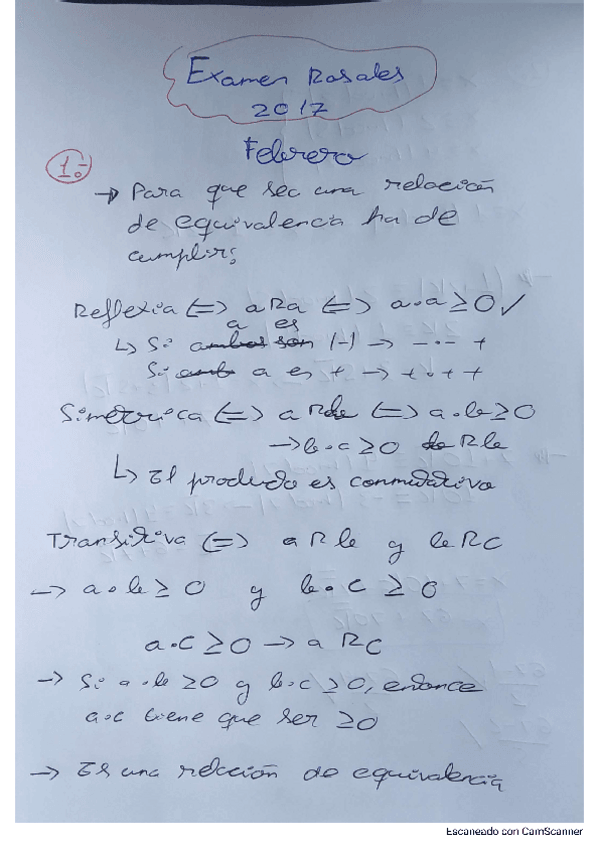 Examen Rosales
2017
Febrero
1º
→ Para que sea una relación
de equivalencia ha de
cumplir:
Reflexia ⇔ aRa ⇔ a·a ≥ 0 ✓
a es
↳ Si ambos son (-) → - · - = +
Si amb a es + → + · + +
Simetrica ⇔ a R b ⇔ a·b ≥ 0
→ b·c ≥ 0 R b
↳ El producto es conmutativo
Transitiva ⇔ a R b y b R C
→ a·b ≥ 0 y b·C ≥ 0
a·C ≥ 0 → a RC
→ Si a·b ≥ 0 y b·c ≥ 0, entonce
a·c tiene que ser ≥ 0
→ Es una relación de equivalencia
Escaneado con CamScanner